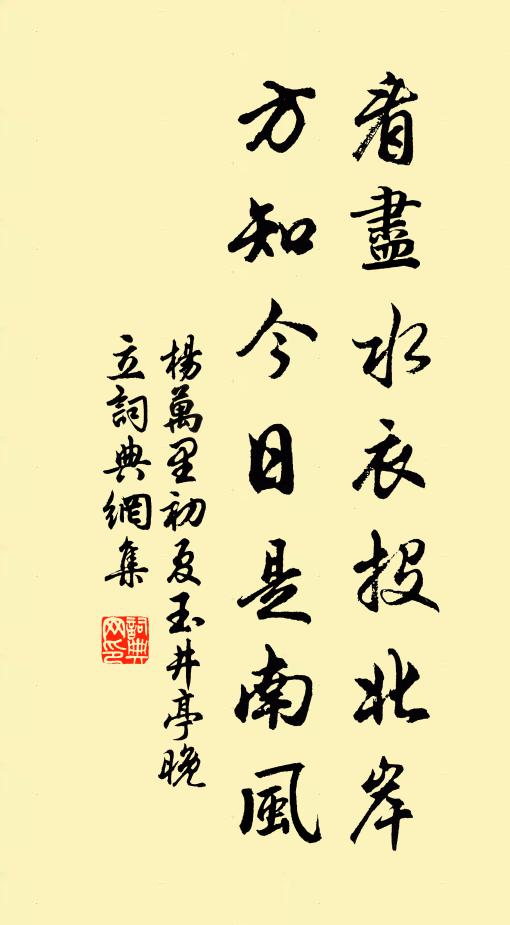 看盡水衣投北岸
方知今日是南風
楊萬里初夏玉井亭晚
立詞典網集
詞典网印